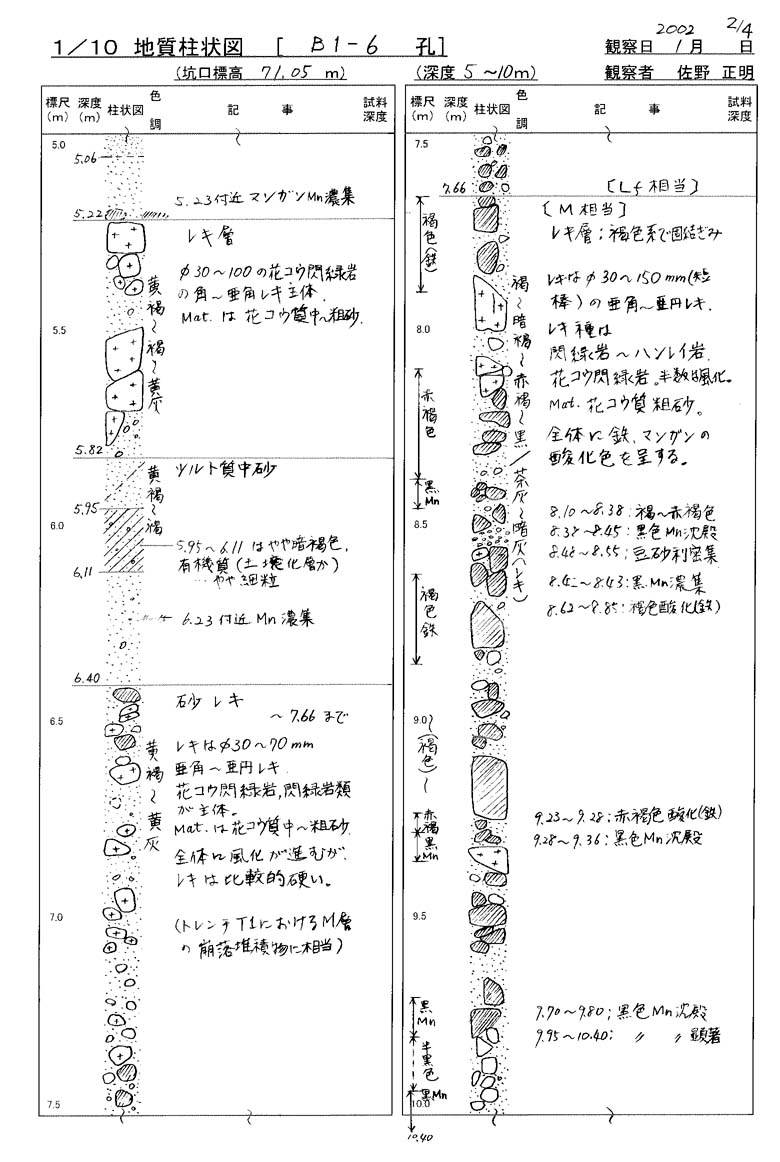 2002 2/4
1/10 地質柱状図 [ B1-6 孔]
観察日 1月 日
(坑口標高 71.05 m)
(深度 5 ~10m)
観察者 佐野 正明
標尺(m) 深度(m) 柱状図 色調 記事 試料深度
5.0
5.06
5.23付近 マンガンMn濃集
5.22
レキ層
φ30~100の花コウ閃緑岩
の角~亜角レキ主体.
Mat. は花コウ質中~粗砂.
黄褐~褐~黄灰
5.5
5.82
シルト質中砂
黄褐~褐
5.95
6.0
5.95~6.11はやや暗褐色,
有機質(土壌化層か)
やや細粒
6.11
6.23付近 Mn濃集
6.40
石少レキ
~7.66まで
6.5
レキはφ30~70mm
亜角~亜円レキ.
花コウ閃緑岩,閃緑岩類
が主体。
Mat.は花コウ質中~粗砂.
全体に風化が進むが、
レキは比較的硬い。
黄褐~黄灰
7.0
(トレンチT1におけるM層
の崩落堆積物に相当)
7.5
標尺(m) 深度(m) 柱状図 色調 記事 試料深度
7.5
7.66
[Lf相当]
[M相当]
レキ層;褐色系で固結ぎみ
褐色(鉄)
レキはφ30~150mm(短
棒)の亜角~亜円レキ.
レキ種は
閃緑岩~ハンレイ岩.
花コウ閃緑岩。半数は風化。
Mat. 花コウ質粗砂。
全体に鉄、マンガンの
酸化色を呈する。
褐~暗褐~赤褐~黒/茶灰~暗灰(レキ)
8.0
赤褐色
黒Mn
8.10~8.38:褐~赤褐色
8.38~8.45:黒色Mn沈殿
8.5
8.48~8.55;豆砂利密集
8.42~8.43:黒Mn濃集
8.62~8.85:褐色酸化(鉄)
褐色鉄
9.0
(褐色)
9.23~9.28:赤褐色酸化(鉄)
9.28~9.36;黒色Mn沈殿
赤褐
黒Mn
9.5
9.70~9.80;黒色Mn沈殿
9.95~10.40; 〃 〃 顕著
黒Mn
半黒色
黒Mn
10.0
10.40